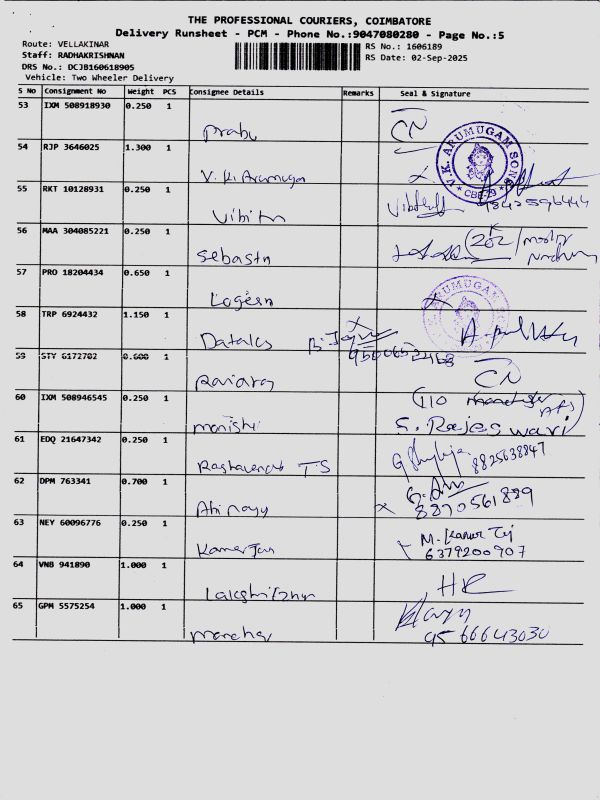 THE PROFESSIONAL COURIERS, COIMBATORE
Delivery Runsheet - PCM - Phone No.:9047080280 - Page No.:5
Route: VELLAKINAR
RS No.: 1606189
Staff: RADHAKRISHNAN
RS Date: 02-Sep-2025
DRS No.: DCJB160618905
Vehicle: Two Wheeler Delivery
S No Consignment No Weight PCS Consignee Details Remarks Seal & Signature
53 IXM 508918930 0.250 1
Prabu CN
54 RJP 3646025 1.300 1
V.K. Arumuga
V.K. ARUMUGAM SONS
CBE-29
55 RKT 10128931 0.250 1
Vibitn 9842596444
56 MAA 304085221 0.250 1
Sebastn 202/
57 PRO 18204434 0.650 1
Logesn
58 TRP 6924432 1.150 1
Datalcs
59 STY 6172702 0.600 1
CN
60 IXM 508946545 0.250 1
110
manishi S. Rajeswari
61 EDQ 21647342 0.250 1
Raghavendr T S 8825638847
62 DPM 763341 0.700 1
Abinaya 8870561899
63 NEY 60096776 0.250 1
M. Kanur Tej
6379200907
64 VNB 941890 1.000 1
HR
65 GPM 5575254 1.000 1
9566643030